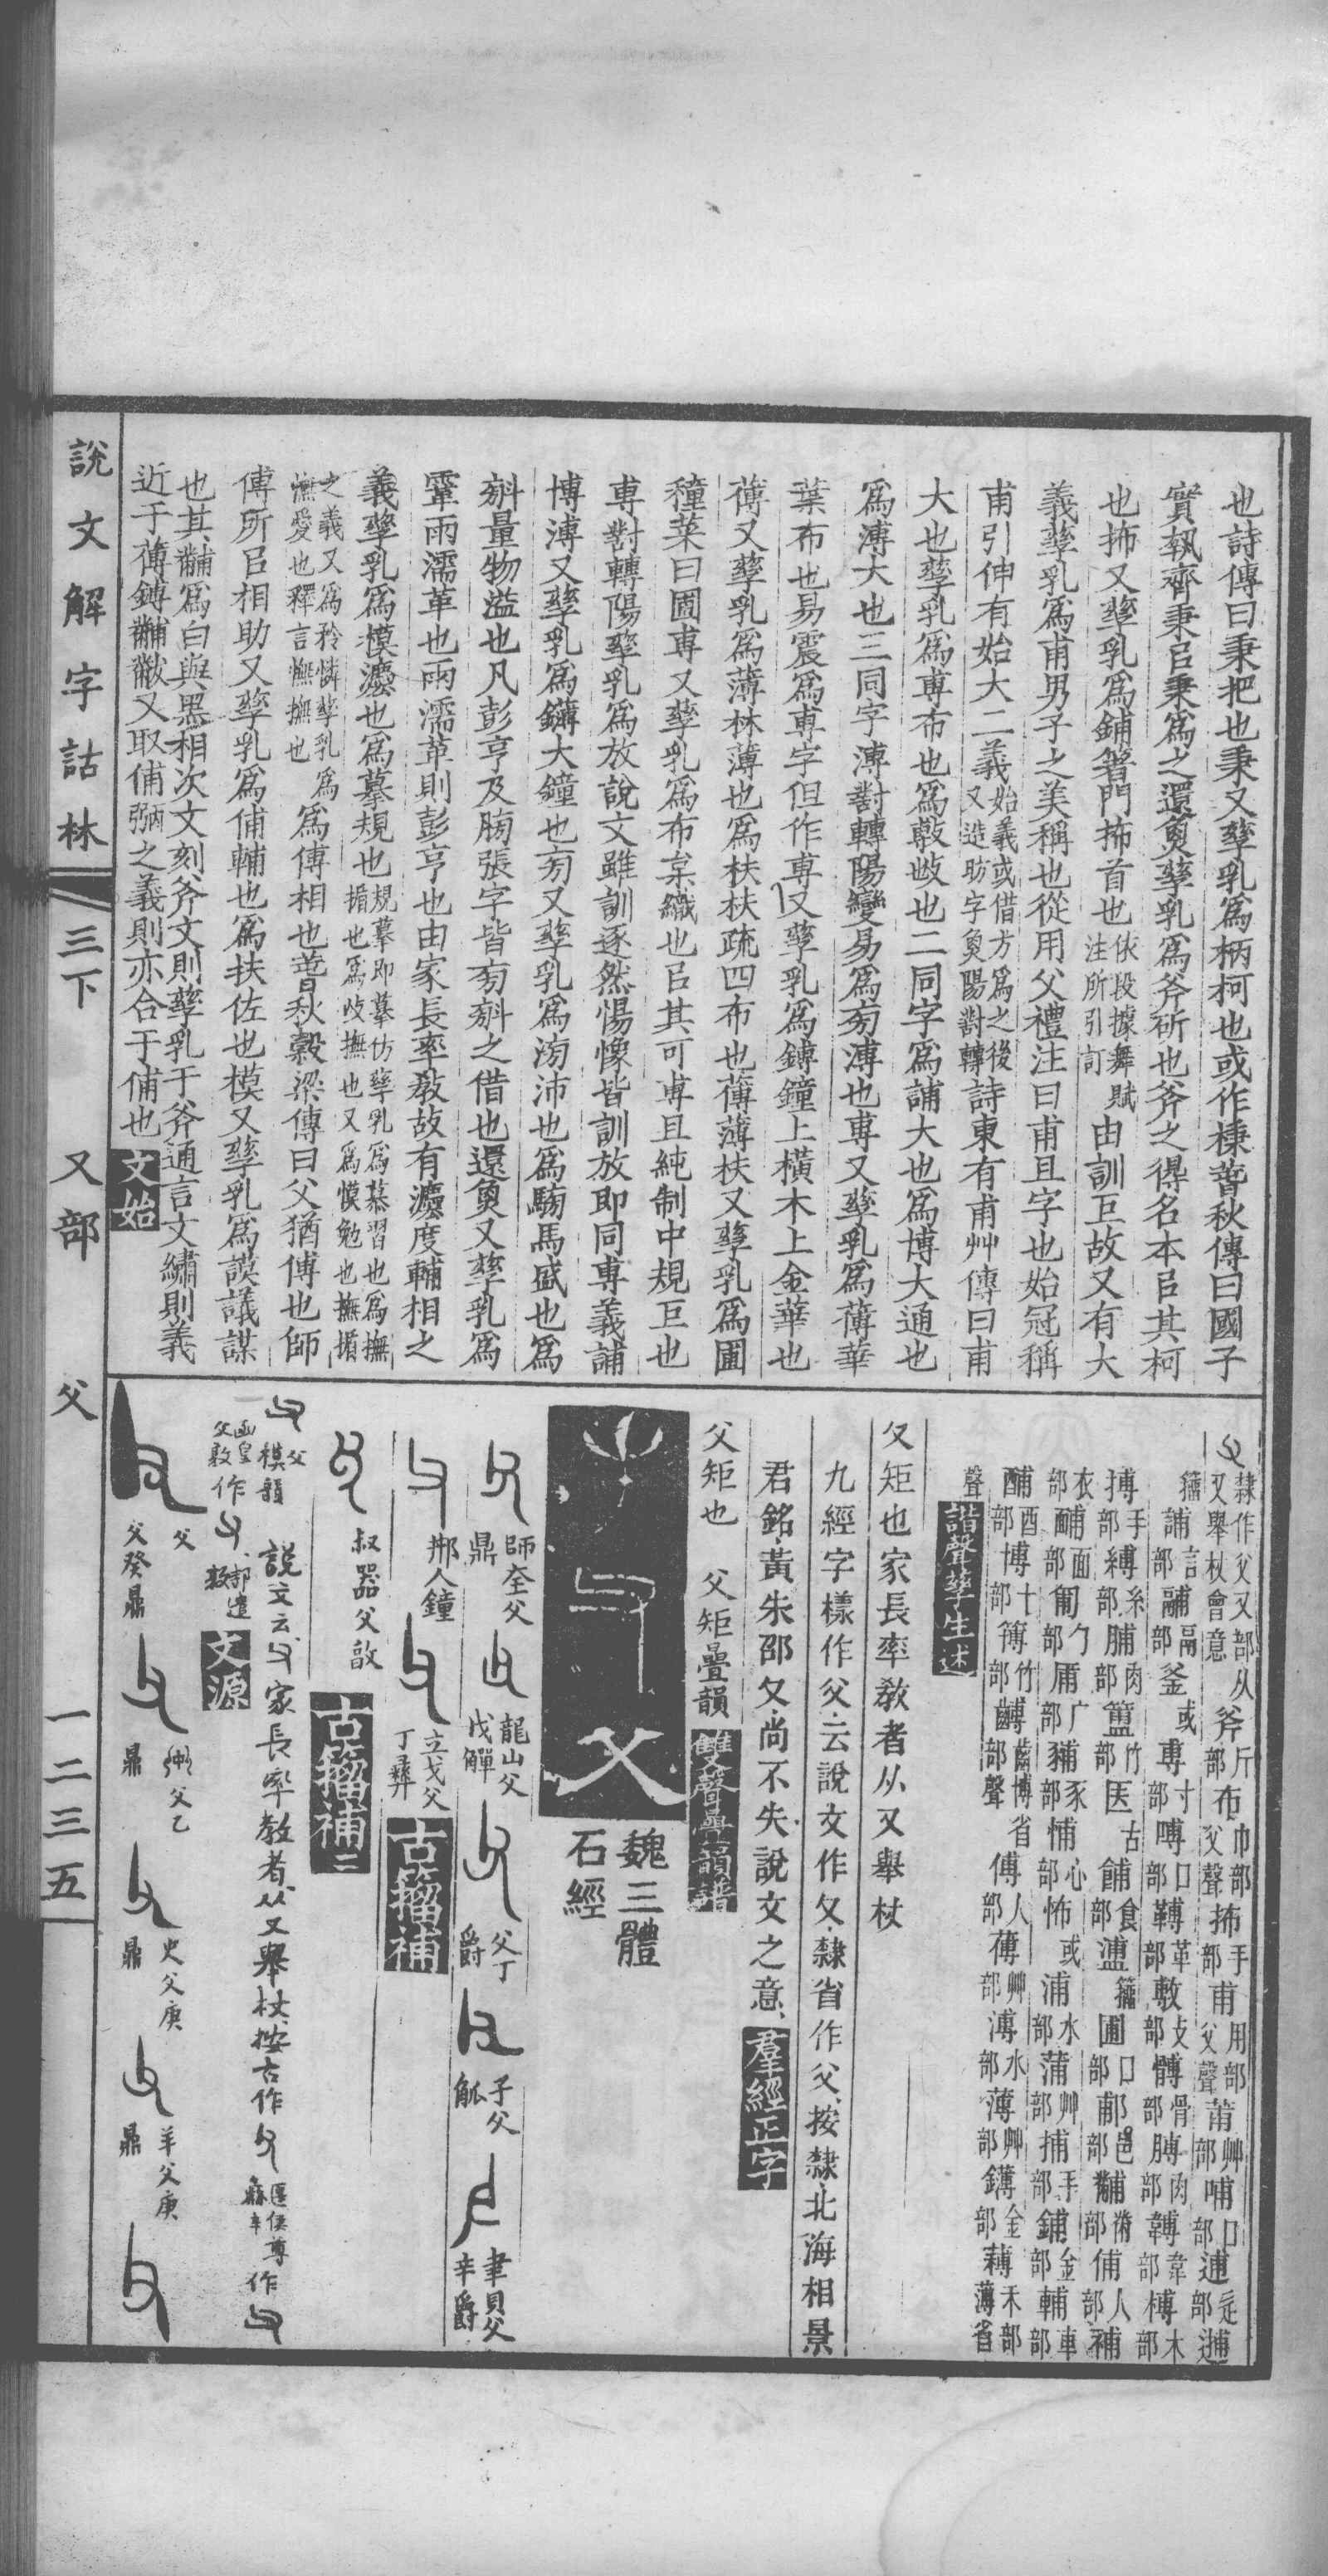 也詩傳曰秉把也秉又孳乳爲柄柯也或作棅萅秋傳曰國子
實執齊秉㠯秉爲之還魚孳乳爲斧斫也斧之得名本㠯其柯
也抪又孳乳爲鋪箸門抪首也依段據舞賦注所引訂由訓巨故又有大
義孳乳爲甫男子之美稱也從用父禮注曰甫且字也始冠稱
甫引伸有始大二義始義或借方爲之後又造昉字魚陽對轉詩東有甫艸傳曰甫
大也孳乳爲尃布也爲敷㪺也二同字爲誧大也爲博大通也
爲溥大也三同字溥對轉陽變易爲㫄溥也尃又孳乳爲蒪華
葉布也易震爲尃字但作専又孳乳爲鎛鐘上橫木上金華也
蒪又孳乳爲薄林薄也爲扶扶疏四布也蒪薄扶又孳乳爲圃
穜菜曰圃尃又孳乳爲布枲織也㠯其可尃且純制中規巨也
尃對轉陽孳乳爲放說文雖訓逐然惕憿皆訓放即同尃義誧
博溥又孳乳爲鑮大鐘也㫄又孳乳爲滂沛也爲騯馬盛也爲
㪵量物溢也凡彭亨及膀張字皆㫄㪵之借也還魚又孳乳爲
䨦雨濡革也雨濡革則彭亨也由家長率教故有灋度輔相之
義孳乳爲模灋也爲摹規也規摹即摹仿孳乳爲慕習也爲撫揗也爲㧊撫也又爲慔勉也撫揗
之義又爲矜憐孳乳爲憮愛也釋言憮撫也爲傅相也萅秋榖梁傳曰父猶傅也師
傅所㠯相助又孳乳爲俌輔也爲扶佐也模又孳乳爲謨議謀
也其黼爲白與黑相次文刻斧文則孳乳于斧通言文繡則義
近于蒪鎛黼黻又取俌弼之義則亦合于俌也 文始
隸作父又部从又舉杖會意 斧斤部 布巾部父聲 抪手部 甫用部父聲 莆艸部 哺口部 逋辵部 逋
籀 誧言部 䰙鬲部 釜或 尃寸部 嚩口部 鞲革部 敷攴部 髆骨部 膊肉部 韛韋部 榑木部
搏手部 縛糸部 脯肉部 簠竹部 医古 餔食部 盙籀 圃囗部 郙邑部 黼黹部 俌人部 補
衣部 䩉面部 匍勹部 庯广部 豧豕部 悑心部 怖或 浦水部 蒲艸部 捕手部 鋪金部 輔車部
酺酉部 博十部 簙竹部 䶈齒部博省聲 傅人部 蒪艸部 溥水部 薄艸部 鑮金部 䅭禾部薄省
聲 諧聲孳生述
父矩也家長率教者从又舉杖
九經字樣作父云說文作攵隸省作父按隸北海相景
君銘黃朱邵攵尚不失說文之意 羣經正字
父矩也 父矩疊韻 雙聲疊韻譜
父
魏三體石經
師𡘇父鼎 龍山父戊觶 父丁爵 子父觚 聿貝父辛爵
邢人鐘 立戈父丁彝 古籀補
叔器父敦 古籀補二
父模韻 說文云 家長率教者从又舉杖按古作 匽侯尊 作
函皇父敦作 邿遣敦 文源
父父癸鼎 父乙鼎 史父庚鼎 羊父庚鼎
說文解字詁林 三下 又部 父 一二三五